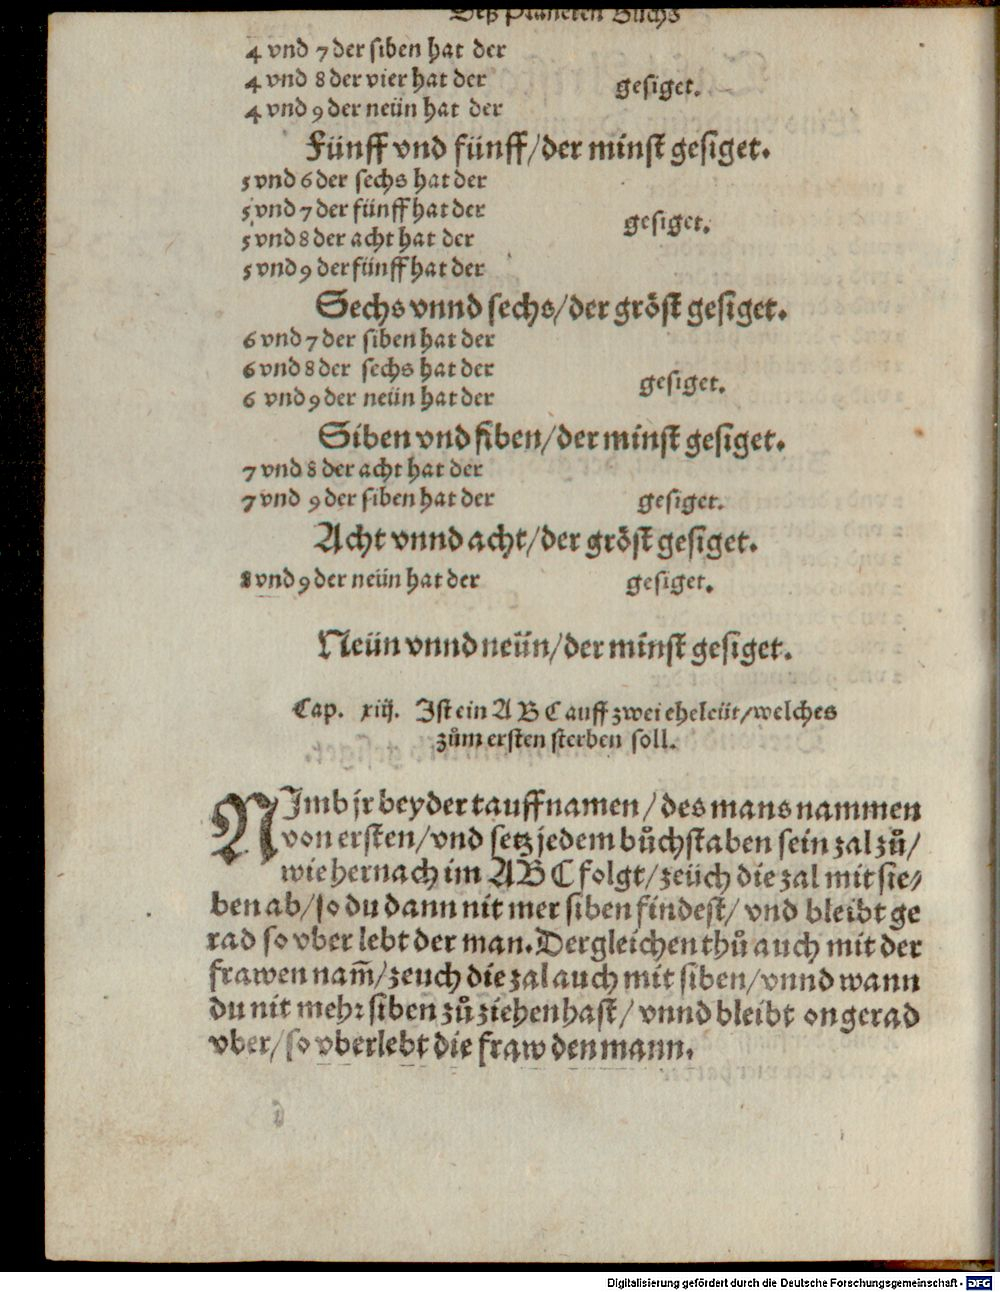 Deß Planeten Buchs
4 vnd 7 der siben hat der
4 vnd 8 der vier hat der
gesiget.
4 vnd 9 der neün hat der
Fünff vnd fünff/der minst gesiget.
5 vnd 6 der sechs hat der
5 vnd 7 der fünff hat der
gesiget.
5 vnd 8 der acht hat der
5 vnd 9 der fünff hat der
Sechs vnnd sechs/der gröst gesiget.
6 vnd 7 der siben hat der
6 vnd 8 der sechs hat der
gesiget.
6 vnd 9 der neün hat der
Siben vnd siben/der minst gesiget.
7 vnd 8 der acht hat der
7 vnd 9 der siben hat der gesiget.
Acht vnnd acht/der gröst gesiget.
8 vnd 9 der neün hat der gesiget.
Neün vnnd neün/der minst gesiget.
Cap. xiij. Ist ein A B C auff zwei eheleüt/welches
zům ersten sterben soll.
NImb jr beyder tauffnamen/des mans nammen
von ersten/vnd setz jedem bůchstaben sein zal zů/
wie hernach im ABC folgt/zeüch die zal mit sie-
ben ab/so du dann nit mer siben findest/ vnd bleibt ge
rad so vber lebt der man. Dergleichen thů auch mit der
frawen nam̃/zeuch die zal auch mit siben/vnnd wann
du nit mehr siben zů ziehen hast/ vnnd bleibt ongerad
vber/so vberlebt die fraw den mann.
Digitalisierung gefördert durch die Deutsche Forschungsgemeinschaft - DFG